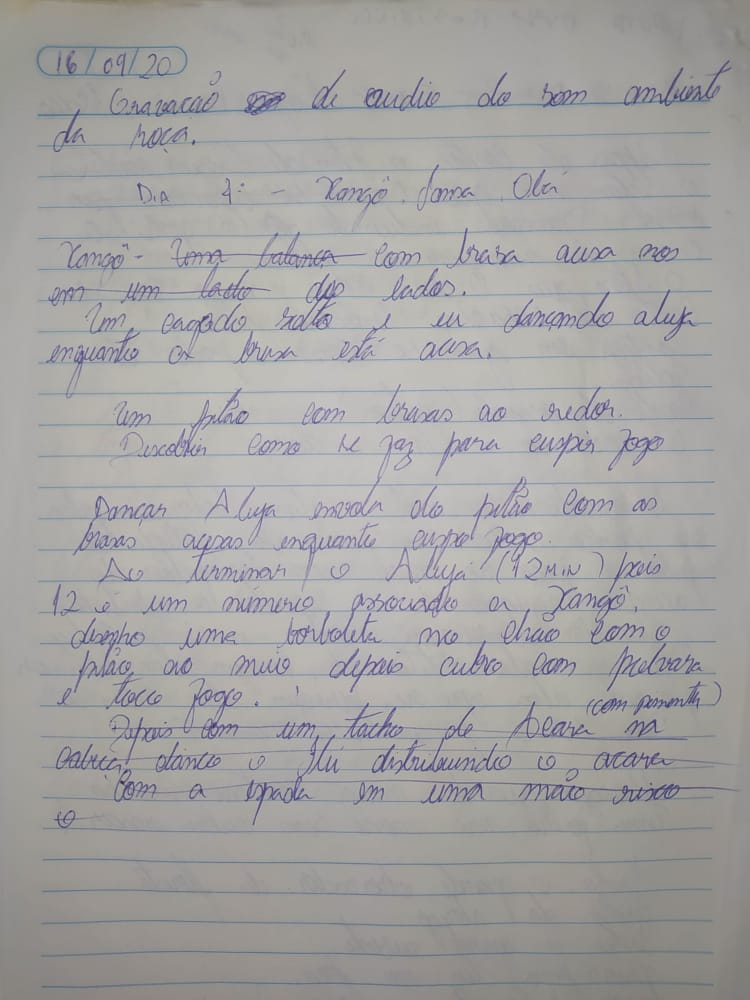 16/09/20
Gravação de audio do som ambiente
da roça.
DIA 4: - Xangô, Joana, Obá
Xangô - Uma balança com brasa acesa nos
em um lado dos lados.
Um cagado solto e eu dançando aluja
enquanto a brasa está acesa.
Um pilão com brasas ao redor.
Discobrir como se faz para cuspir fogo
Dançar Aluja envolta do pilão com as
brasas acesas enquanto cuspo fogo.
Ao terminar o Alujá (12MIN) pois
12 é um número associado a Xangô,
desenho uma borboleta no chão com o
pilão ao meio depois cubro com pólvora
e toco fogo.
(com pimenta)
Depois com um tacho de Acara na
cabeça danco o Ilú distribuindo o acara
Com a espada em uma mão risco
o